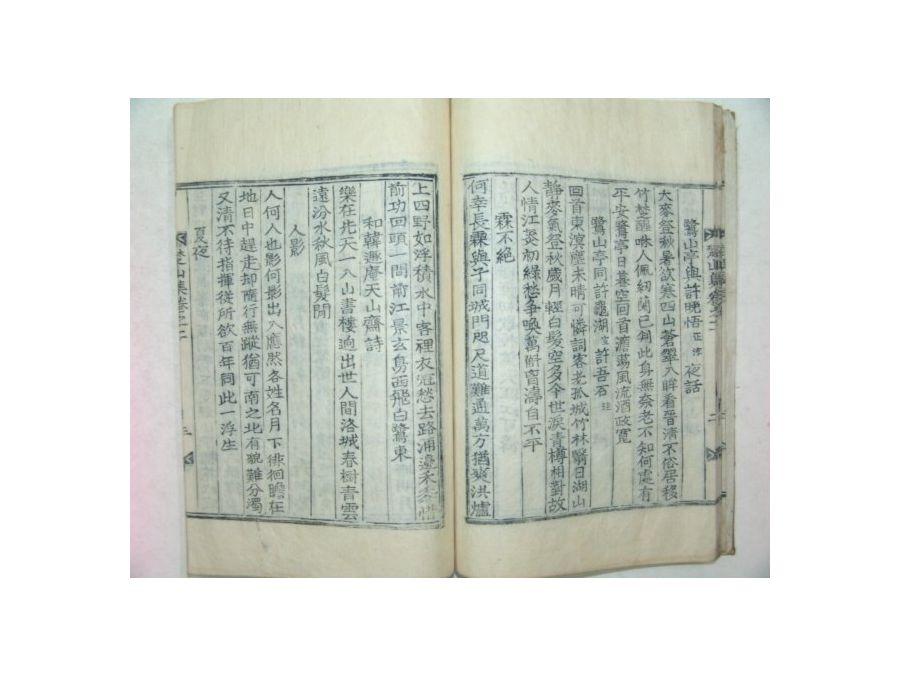 鷺山亭與許晩悟 夜話
大麥登秋暑欲寒四山蒼翠入眸看晉淸不俗居移
竹楚醒咻人佩紉蘭已判此身無奈老不知何處有
平安鷺亭日暮空回首澹蕩風流酒政寬
鷺山亭同許龜湖 許吾石
回首東溟應未晴可憐詞客老孤城竹林翳日湖山
靜麥氣登秋歲月輕白髮空多今世淚靑樽相對故
人情江 初綠愁爭喚萬 濤自不平
霖不絶
何幸長霖與子同城門咫尺道難通萬方猶 洪爐
上四野如浮積水中客裡衣冠愁去路浦邊禾 惜
前功回頭一問前江景玄鳥西飛白鷺東
和韓 庵天山齋詩
樂在此天一入山書樓逈出世人間洛城春樹靑雲
遠汾水秋風白髮閒
人影
人何人也影何影出入應然各姓名月下徘徊瞻在
地日中趕走却隨行無蹤猶可南之北有貌難分濁
又淸不待指揮從所欲百年同此一浮生
夏夜
山集卷之二
三